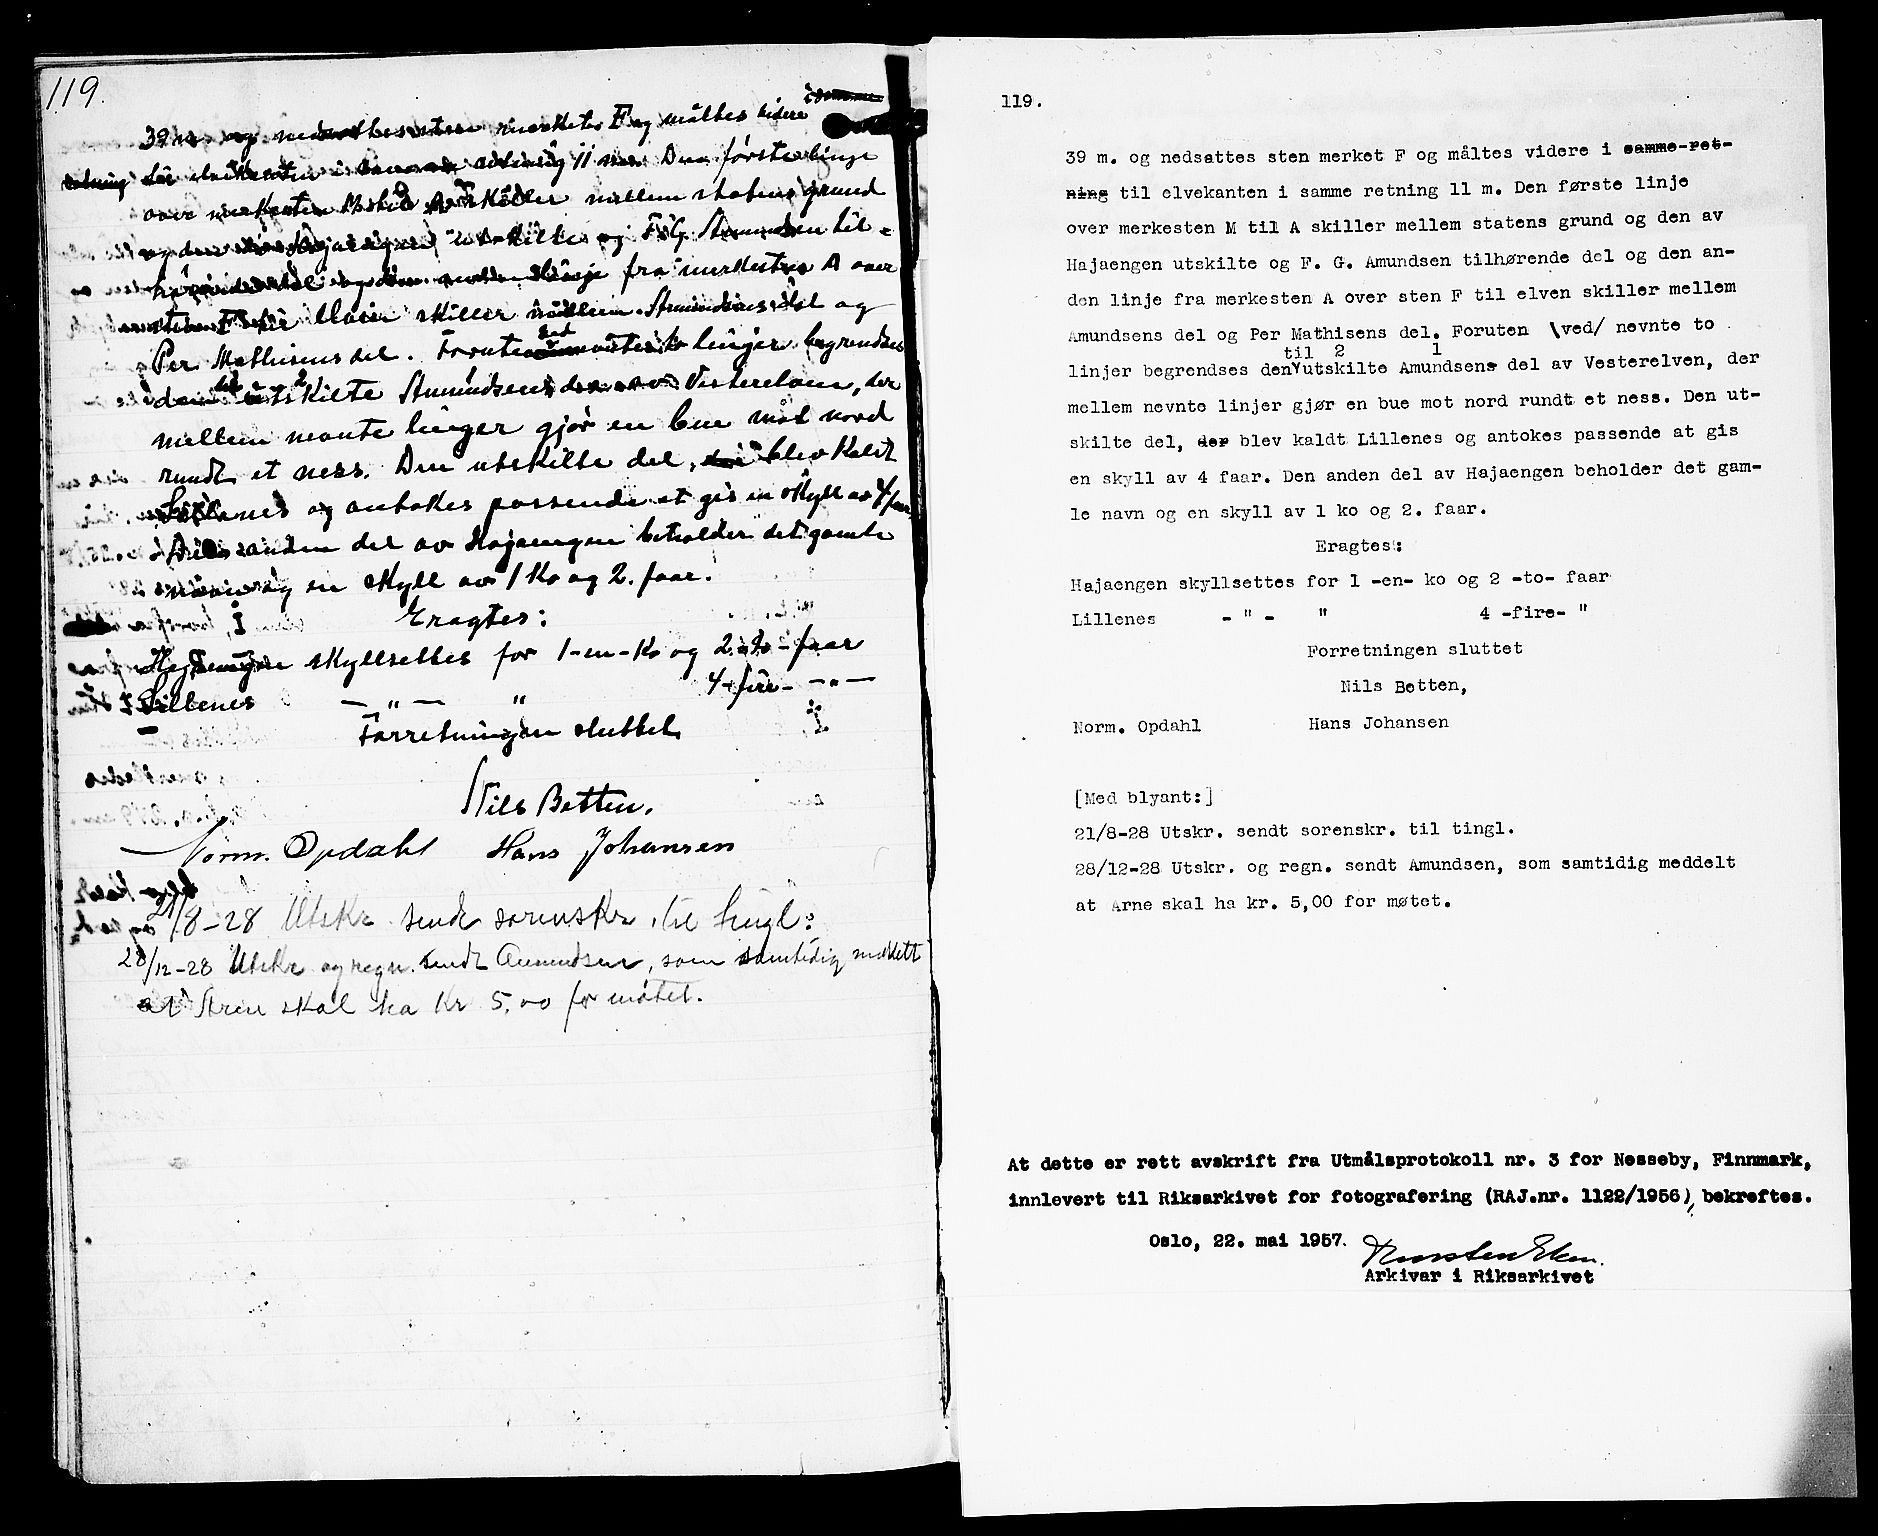 119.
39 m. og nedsattes sten merket F og måltes videre i samme
retning til elvekanten i samme retning 11 m. Den første linje
over merkesten M til A skiller mellem statens grund
og den av Hajaengen utskilte og F. G. Amundsen til-
hørende del og den anden linje fra merkesten A over
sten F til elven skiller mellem Amundsens del og
Per Mathisens del. Foruten ved nevnte to linjer begrendses
den til 2 utskilte Amundsens del av Vesterelven, der
mellem nevnte linjer gjør en bue mot nord
rundt et ness. Den utskilte del, der blev kaldt
Lillenes og antokes passende at gis en skyll av 4 faar.
Den anden del av Hajaengen beholder det gamle
navn og en skyll av 1 ko og 2. faar.
Eragtes:
Hajaengen skyllsettes for 1-en-ko og 2-to-faar
Lillenes — " — " 4-fire- — " —
Forretningen sluttet
Nils Betten.
Norm. Opdahl Hans Johansen
21/8-28 Utskr. sendt sorenskr. til tingl.
28/12-28 Utskr og regn. sendt Amundsen, som samtidig meddelt
at Arne skal ha kr 5,00 for møtet.
119.
39 m. og nedsattes sten merket F og måltes videre i samme ret-
ning til elvekanten i samme retning 11 m. Den første linje
over merkesten M til A skiller mellem statens grund og den av
Hajaengen utskilte og F. G. Amundsen tilhørende del og den an-
den linje fra merkesten A over sten F til elven skiller mellem
Amundsens del og Per Mathisens del. Foruten \ved/ nevnte to
til 2 1
linjer begrendses den utskilte Amundsens del av Vesterelven, der
mellem nevnte linjer gjør en bue mot nord rundt et ness. Den ut-
skilte del, der blev kaldt Lillenes og antokes passende at gis
en skyll av 4 faar. Den anden del av Hajaengen beholder det gam-
le navn og en skyll av 1 ko og 2. faar.
Eragtes:
Hajaengen skyllsettes for 1 -en- ko og 2 -to- faar
Lillenes - " - " 4 -fire- "
Forretningen sluttet
Nils Betten,
Norm. Opdahl Hans Johansen
[Med blyant:]
21/8-28 Utskr. sendt sorenskr. til tingl.
28/12-28 Utskr. og regn. sendt Amundsen, som samtidig meddelt
at Arne skal ha kr. 5,00 for møtet.
At dette er rett avskrift fra Utmålsprotokoll nr. 3 for Nesseby, Finnmark,
innlevert til Riksarkivet for fotografering (RAJ.nr. 1122/1956), bekreftes.
Oslo, 22. mai 1957.
Arkivar i Riksarkivet